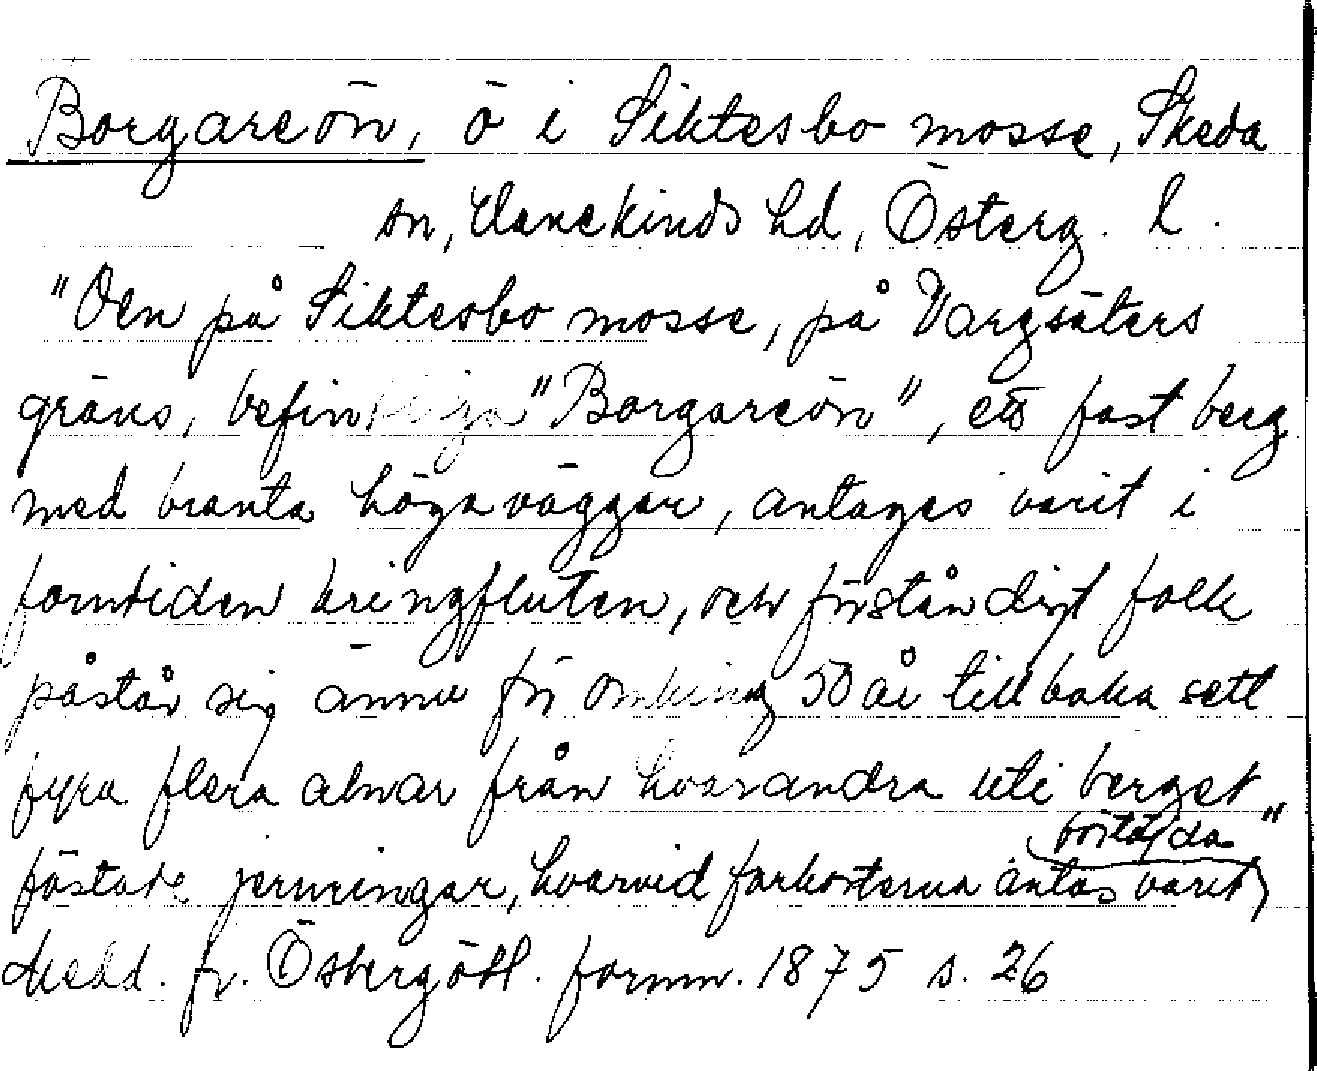 Borgareön, ö i Siktesbo mosse, Skeda
sn, Hanekinds hd, Österg. l.
"Den på Siktesbo mosse, på Vargsäters
gräns, befintliga "Borgareön", ett fast berg
med branta höga väggar, antages varit i
forntiden kringfluten, och förståndigt folk
påstår sig ännu för omkring 50 år tillbaka sett
fyra flera alnar från hvarandra uti berget
fästade jernringar, hvarvid farkosterna antas varit
förtöjda"
Medd. fr. Östergötl. fornm. 1875 s. 26